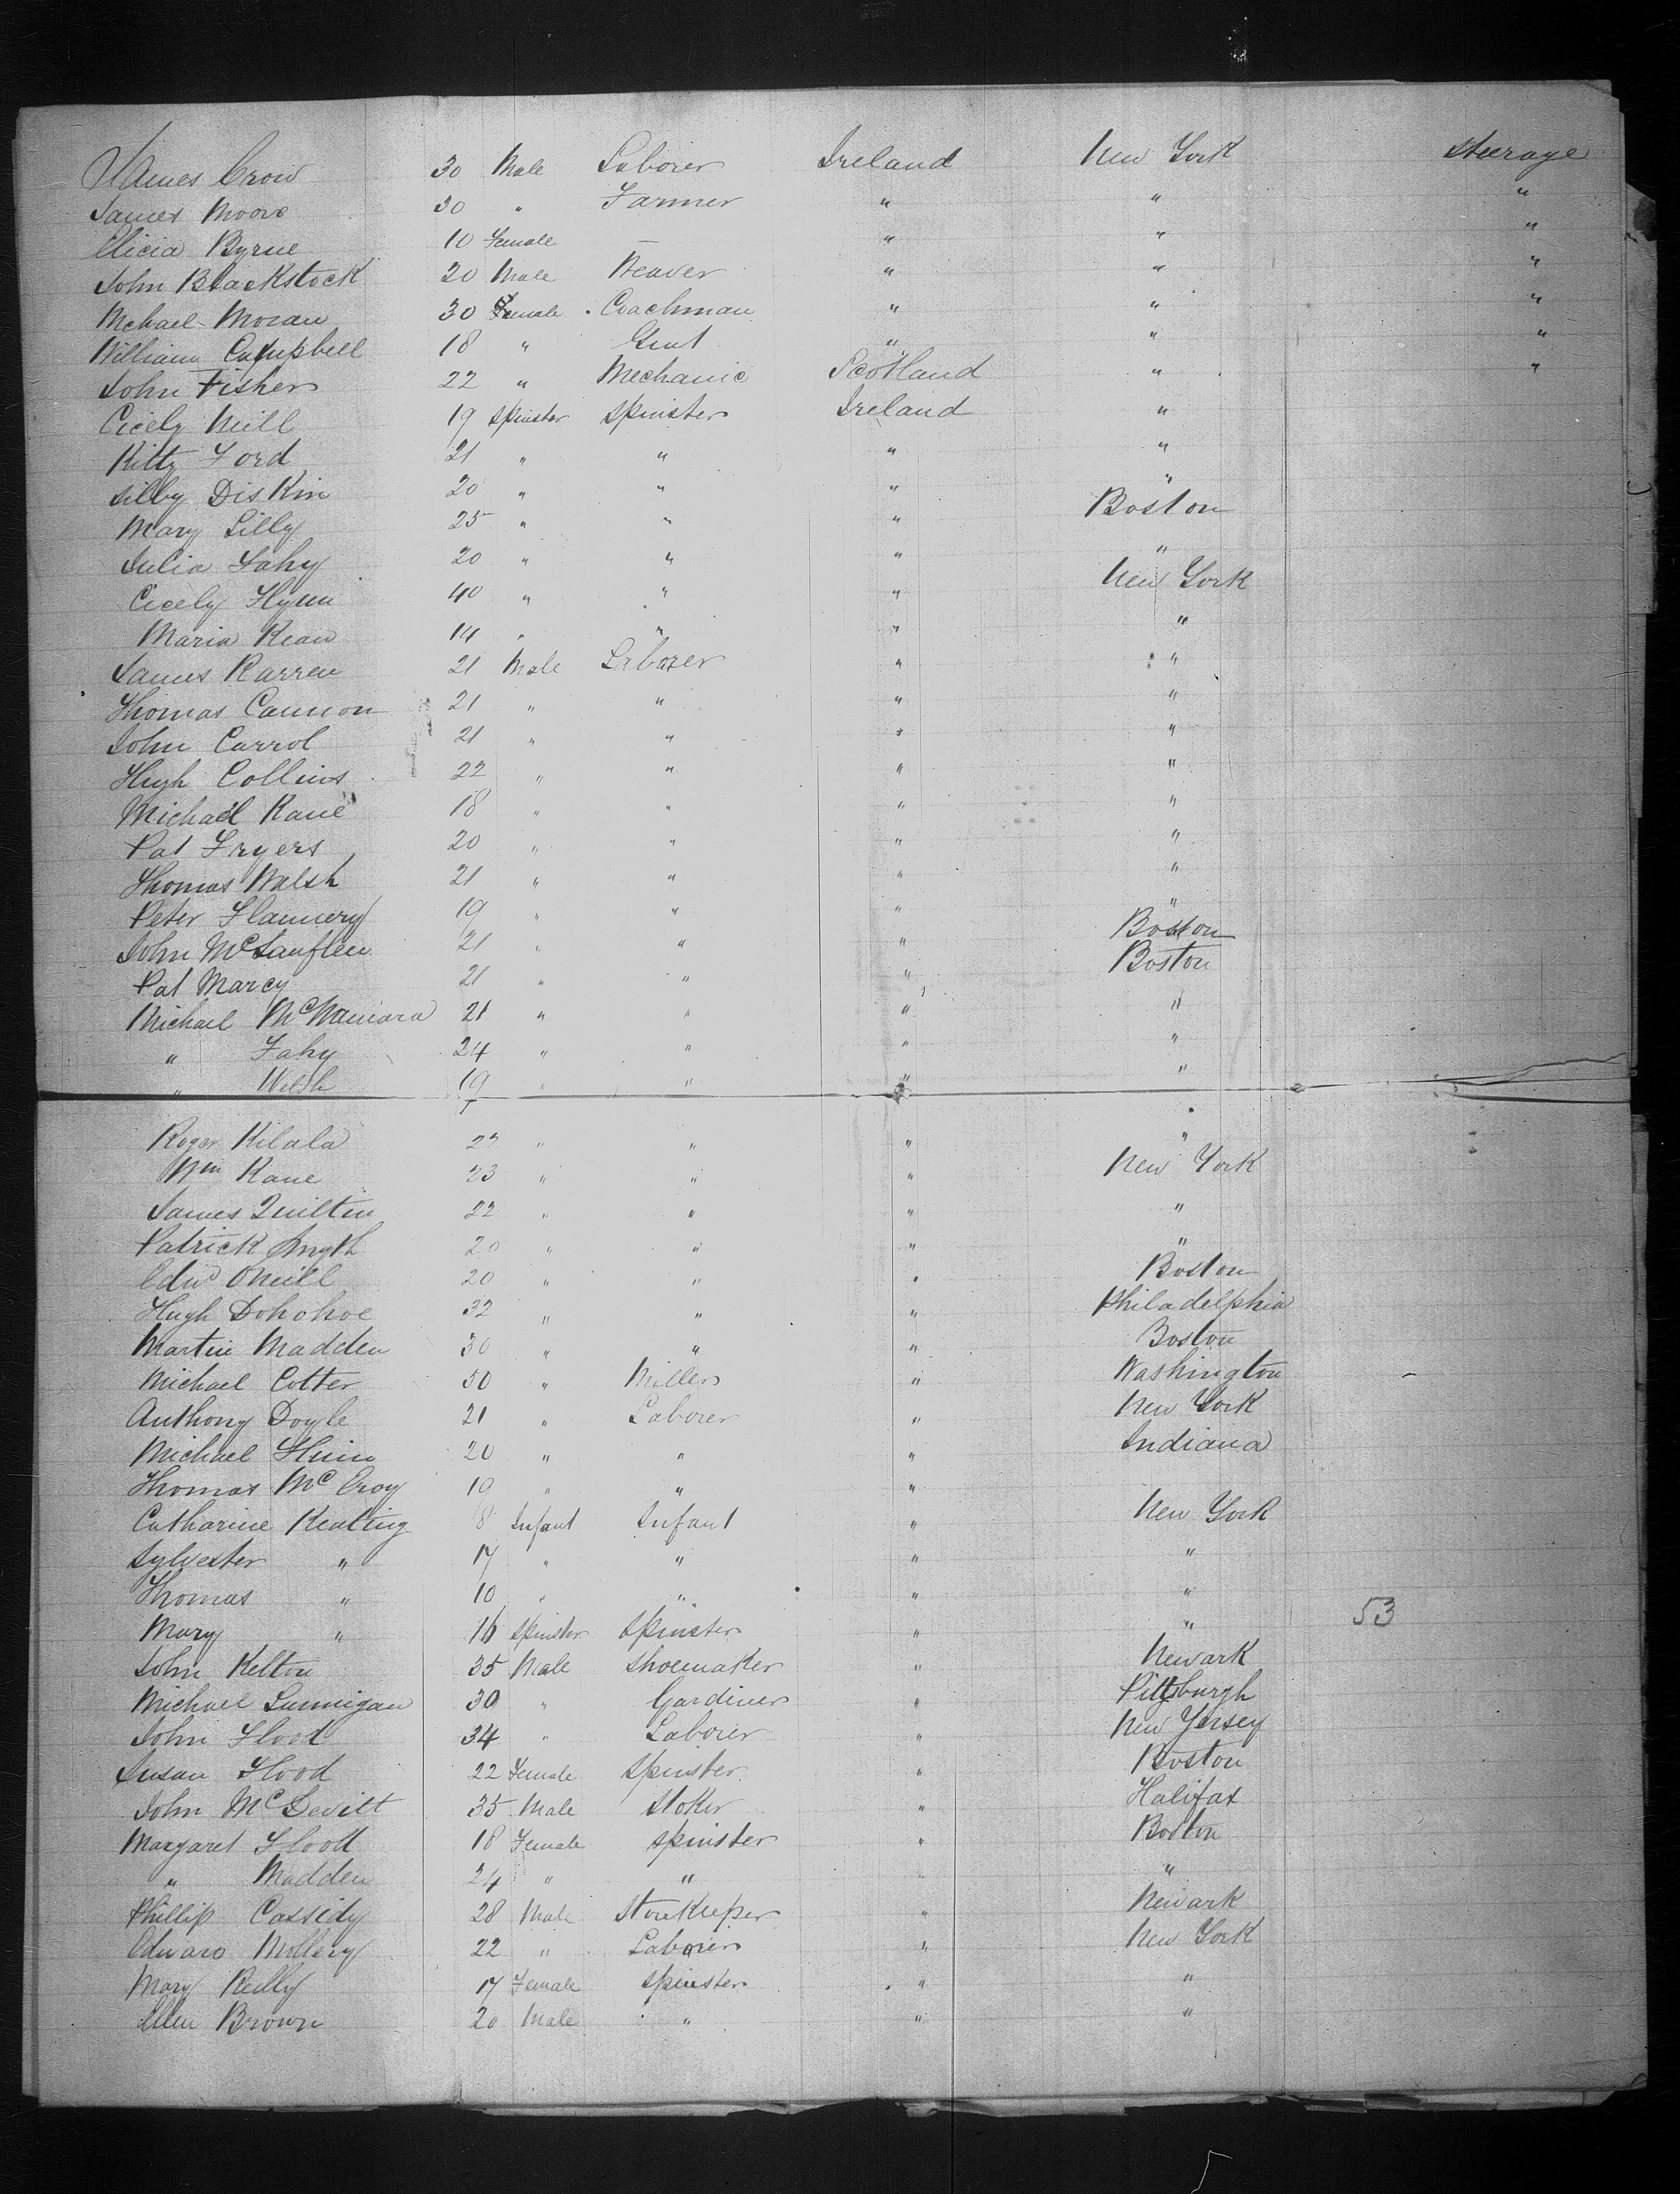 James Crow 30 Male Laborer Ireland New York Steerage
James Moore 30 " Farmer " " "
Elicia Byrne 10 Female — " " "
John Blackstock 20 Male Weaver " " "
Mchael Moran 30 Female Coachman " " "
William Campbell 18 " Gent " " "
John Fisher 22 " Mechanic Scotland " "
Cicely Neill 19 Spinster Spinster Ireland "
Kitty Ford 21 " " " "
Silby Diskin 20 " " " "
Mary Lilly 25 " " " Boston
Julia Fahy 20 " " " "
Cicely Flynn 40 " " " New York
Maria Kean 14 " " " "
James Karren 21 Male Laborer " "
Thomas Cannon 21 " " " "
John Carrol 21 " " " "
Hugh Collins 22 " " " "
Michael Kane 18 " " " "
Pat Fryers 20 " " " "
Thomas Walsh 21 " " " "
Peter Flannery 19 " " " "
John 21 " " " Boston
Pat Marcy 21 " " " Boston
Michael McNamara 21 " " " "
" Fahy 24 " " " "
" Welsh 19 " " " "
Roger Kilala 22 " " " "
Wm Kane 23 " " " New York
James Quilten 22 " " " "
Patrick Smyth 20 " " " "
Edwd ONeill 20 " " " Boston
Hugh Dohohoe 32 " " " Philadelphia
Martin Madden 30 " " " Boston
Michael Cotter 50 " Miller " Washington
Anthony Doyle 21 " Laborer " New York
Michael 20 " " " Indiana
Thomas McEroy 19 " " "
Catharine Keating 8 Infant Infant " New York
Sylvester " 17 " " " "
Thomas " 10 " " " "
Mary " 16 Spinster Spinster " " 53
John Kelton 35 Male Shoemaker " Newark
Michael Lannigan 30 " Gardiner " Pittsburgh
John Flood 34 " Laborer " New Jersey
Susan Flood 22 Female Spinster " Boston
John McDevitt 35 Male Stoker " Halifax
Margaret Flood 18 Female Spinster " Boston
" Madden 24 " " " "
Phillip Cassidy 28 Male Storekeeper " Newark
Edward Mollery 22 " Laborer " New York
Mary Reilly 17 Female Spinster " "
Ellen Brown 20 Male " " "